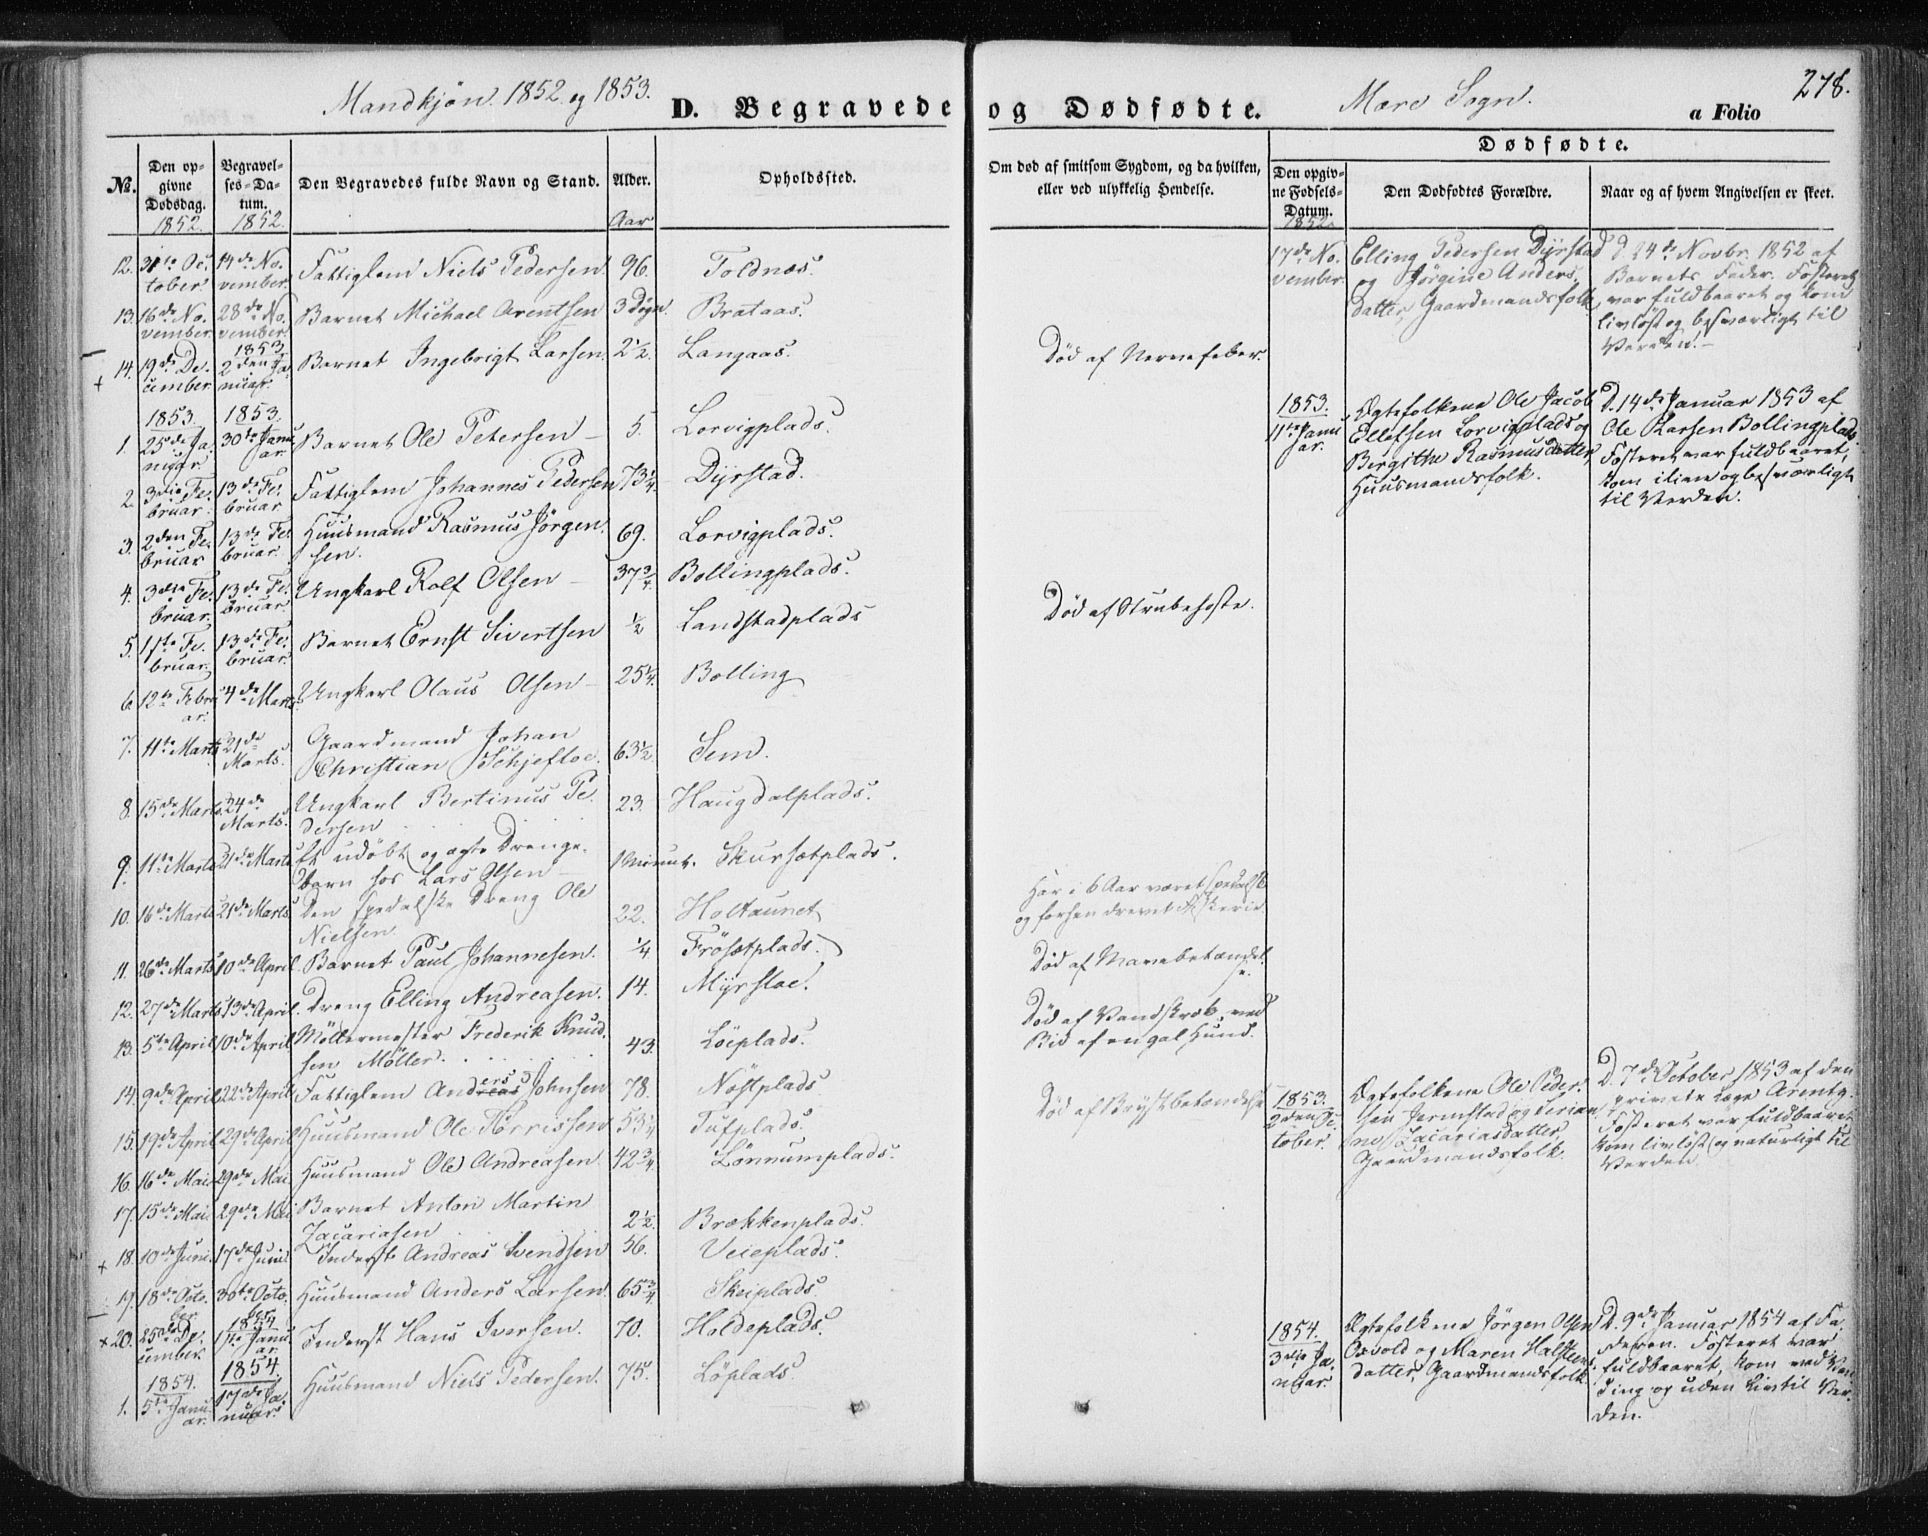 Mandkjøn. 1852 og 1853.
D. Begravede og Dødfødte.
Mære Sogn.
a Folio
278.
No.
Den opgivne Dødsdag.
Begravelses-Datum.
Den Begravedes fulde Navn og Stand.
Alder.
Opholdssted.
Om død af smitsom Sygdom, og da hvilken, eller ved ulykkelig Hendelse.
Dødfødte.
Den opgivne Fødsels-Datum.
Den Dødfødtes Forældre.
Naar og af hvem Angivelsen er skeet.
1852. 1852. Aar 1852.
12. 31te October 14de November Fattiglem Niels Pedersen. 96. Toldnæs.
13. 16de November 28de November Barnet Michael Arentsen 3 Døgn. Brataas.
14. 19de December 1853 2den Januar. Barnet Ingebrigt Larsen. 2½. Langaas. Død af Nervefeber.
1853. 1853.
1. 25de Januar 30te Januar. Barnet Ole Petersen 5. Lorvigplads.
2. 3die Februar. 13de Februar Fattiglem Johannes Pedersen 73¼. Dyrstad.
3. 2den Februar 13de Februar. Huusmand Rasmus Jørgensen. 69. Lorvigplads.
4. 3die Februar. 13de Februar. Ungkarl Rolf Olsen 37¾ Bollingplads.
5. 1ste Februar. 13de Februar. Barnet Ernst Sivertsen ½ Landstadplads Død af Strubehoste.
6. 12te Februar. 4de Marts. Ungkarl Olaus Olsen 25¼. Bolling
7. 11te Marts 21de Marts. Gaardmand Johan Christian Schjefloe. 63½ Sem.
8. 15de Marts. 24de Marts. Ungkarl Bertinus Pedersen 23. Haugdalplads.
9. 11te Marts 21de Marts Et udøbt og ægte Drengebarn hos Lars Olsen 1 Minut. Skursætplads.
10. 16de Marts 21de Marts. Den spedalske Dreng Ole Nielsen. 22. Holtaunet Har i 6 Aar været spedalsk og forhen drevet Fiskerie.
11. 26de Marts 10de April. Barnet Paul Johannesen. ¼ Frösætplads. Død af Mavebetændelse.
12. 27de Marts 13de April. Dreng Elling Andreasen. 14. Myrstoe. Død af Vandskræk, ved Bid af en gal Hund.
13. 5te April 10de April Møllermester Frederik Knudsen Møller. 43. Löeplads.
14. 9de April 22de April Fattiglem Anders Johnsen 78. Nøstplads Død af Brystbetændelse
15. 19de April 29de April Huusmand Ole Tørrissen 53¼ Tufplads.
16. 16de Mai 29de Mai Huusmand Ole Andreasen 42¾ Lønnumplads.
17. 15de Mai. 29de Mai Barnet Anton Martin Zacariasen 2½. Brækkenplads.
18. 10de Juni. 17de Juni Inderst Andreas Svendsen 56. Veieplads.
19. 18de October 30te October. Huusmand Anders Larsen. 65¾ Skeiplads.
20. 25de December 1854 1ste Januar. Inderst Hans Iversen. 70. Holdeplads.
1854. 1854.
1. 5te Januar. 17de Januar. Huusmand Niels Pedersen. 75. Löplads.
17de November Elling Pedersen Dyrstad og Jørgine Andersdatter, Gaardmandsfolk D. 24de Novbr. 1852 af Barnets Fader. Fosteret var fuldbaaret og kom livløst og besværligt til Verden.
1853. 11te Januar. Ægtefolkene Ole Jacob Ellefsen Lorvigplads og Bergithe Rasmusdatter, Huusmandsfolk. D. 14de Januar 1853 af Ole Larsen Bollingplads. Fosteret var fuldbaaret, kom ilive og besværligt til Verden.
1853. 2den October. Ægtefolkene Ole Pedersen Jermstad og Zacariasdatter Gaardmandsfolk. D. 7de October 1853 af den private Læge Arentz. Fosteret var fuldbaaret kom livløst og naturligt til Verden.
1854. 3die Januar. Ægtefolkene Jørgen Olsen Oxvold og Maren Halstensdatter, Gaardmandsfolk. D. 9de Januar 1854 af Faderen. Fosteret var fuldbaaret, kom ved Vending og uden Liv til Verden.